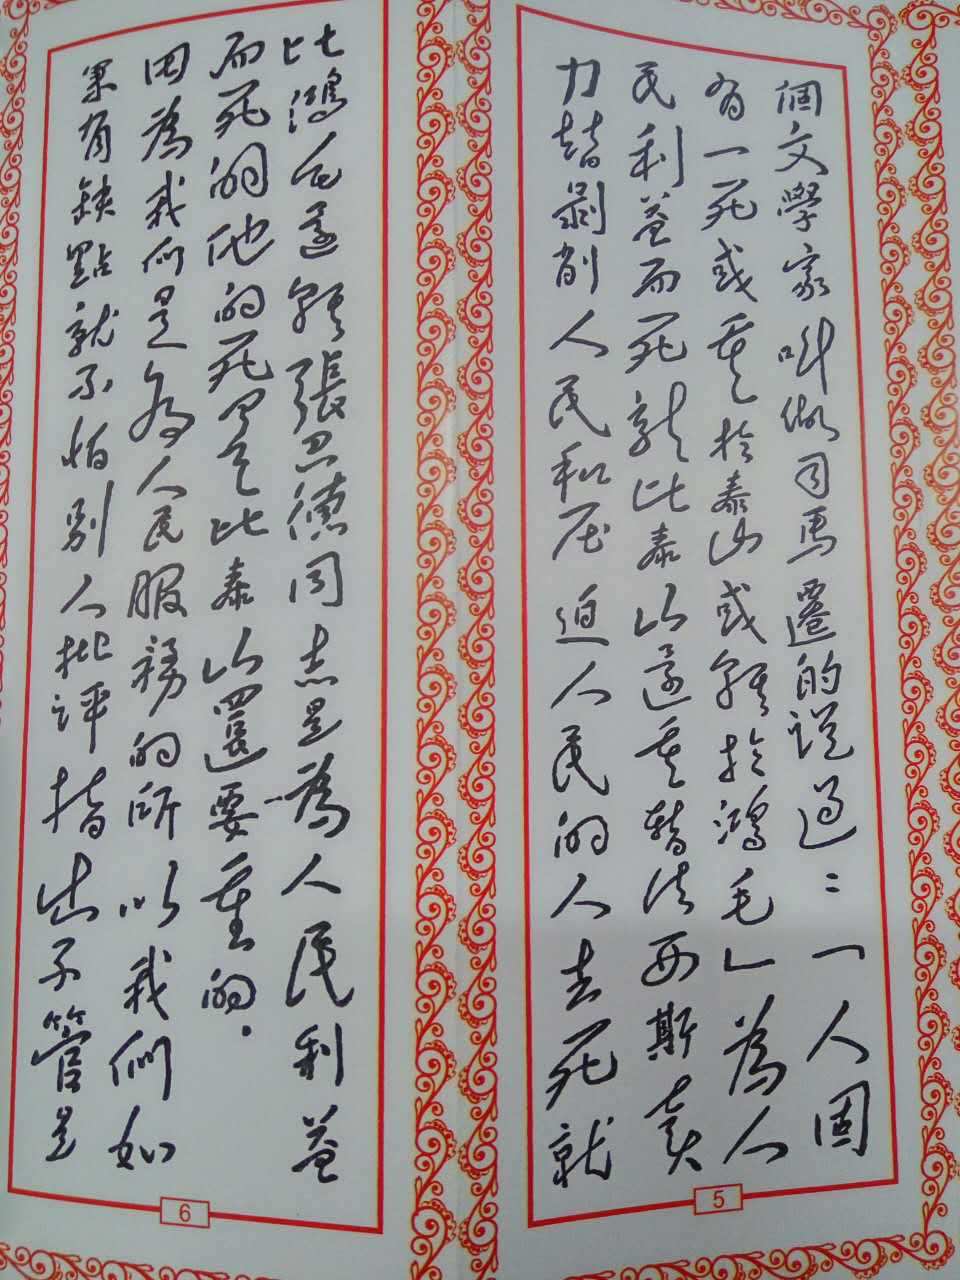 個文學家叫做司馬遷的説過：「人固
有一死或重於泰山或輕於鴻毛」為人
民利益而死就比泰山還重替法西斯賣
力替剝削人民和压迫人民的人去死就
5
比鴻毛還輕張思德同志是為人民利益
而死的他的死是比泰山還要重的.
因為我们是為人民服務的所以我們如
果有缺點就不怕別人批評指出不管是
6